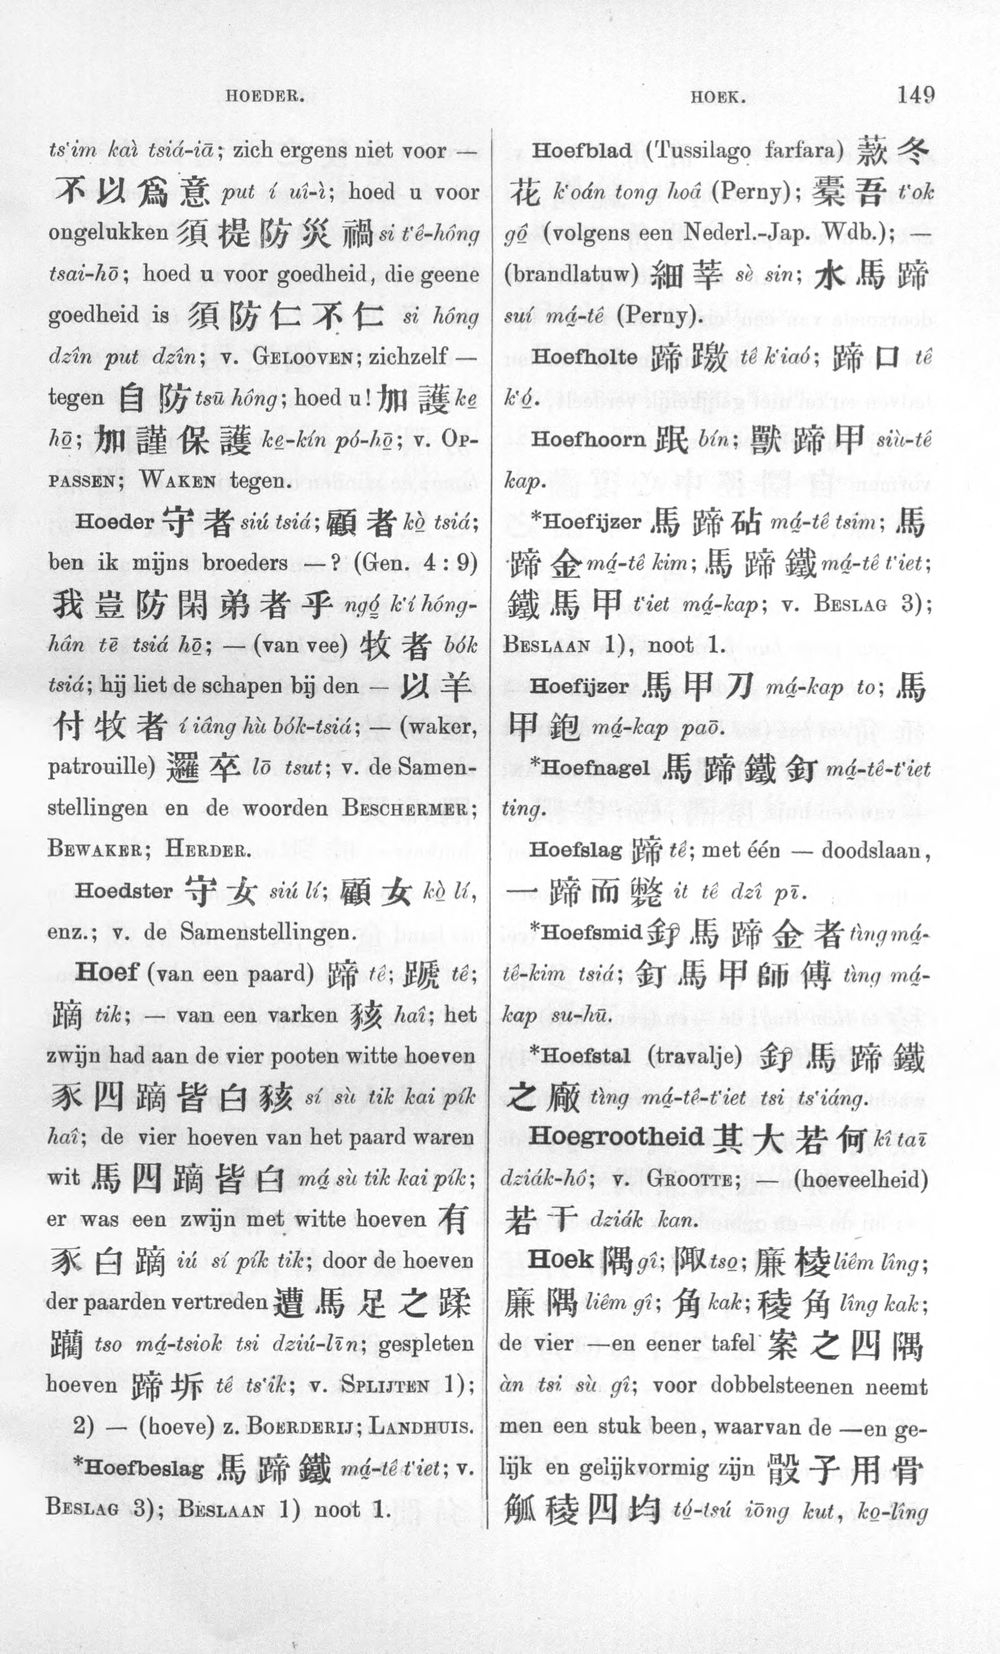 HOEDER.
HOEK.
149
ts‘im kaì tsiá-iā; zich ergens niet voor —
不以爲意 put í uî-ì; hoed u voor
ongelukken 須提防災禍 si t‘ê-hông
tsai-hō; hoed u voor goedheid, die geene
goedheid is 須防仁不仁 si hóng
dzîn put dzîn; v. GELOOVEN; zichzelf —
tegen 自防 tsū hông; hoed u! 加護 ke̱
hō̱; 加謹保護 ke̱-kín pó-hō̱; v. OP-
PASSEN; WAKEN tegen.
Hoeder 守者 siú tsiá; 顧者 kò̱ tsiá;
ben ik mijns broeders —? (Gen. 4 : 9)
我豈防閑弟者乎 ngó̱ k‘í hóng-
hân tē tsiá hō̱; — (van vee) 牧者 bók
tsiá; hij liet de schapen bij den — 以羊
付牧者 í iâng hù bók-tsiá; — (waker,
patrouille) 邏卒 lō tsut; v. de Samen-
stellingen en de woorden BESCHERMER;
BEWAKER; HERDER.
Hoedster 守女 siú lí; 顧女 kò̱ lí,
enz.; v. de Samenstellingen.
Hoef (van een paard) 蹄 tê; 蹏 tê;
蹢 tik; — van een varken 豥 haî; het
zwijn had aan de vier pooten witte hoeven
豕四蹢皆白豥 sí sù tik kai pík
haî; de vier hoeven van het paard waren
wit 馬四蹢皆白 má̱ sù tik kai pík;
er was een zwijn met witte hoeven 有
豕白蹢 iú sí pík tik; door de hoeven
der paarden vertreden 遭馬足之蹂
躪 tso má̱-tsiok tsi dziú-līn; gespleten
hoeven 蹄坼 tê ts‘ik; v. SPLIJTEN 1);
2) — (hoeve) z. BOERDERIJ; LANDHUIS.
*Hoefbeslag 馬蹄鐵 má̱-tê t‘iet; v.
BESLAG 3); BESLAAN 1) noot 1.
Hoefblad (Tussilago farfara) 蒅冬
花 k‘oán tong hoâ (Perny); 橐吾 t‘ok
gô̱ (volgens een Nederl.-Jap. Wdb.); —
(brandlatuw) 細莘 sè sin; 水馬蹄
suí má̱-tê (Perny).
Hoefholte 蹄蹾 tê k‘iaó; 蹄口 tê
k‘ó̱.
Hoefhoorn 䟨 bín; 獸蹄甲 siù-tê
kap.
*Hoefijzer 馬蹄砧 má̱-tê tsim; 馬
蹄金 má̱-tê kim; 馬蹄鐵 má̱-tê t‘iet;
鐵馬甲 t‘iet má̱-kap; v. BESLAG 3);
BESLAAN 1), noot 1.
Hoefijzer 馬甲刀 má̱-kap to; 馬
甲鉋 má̱-kap paō.
*Hoefnagel 馬蹄鐵釘 má̱-tê-t‘iet
ting.
Hoefslag 蹄 tê; met één — doodslaan,
一蹄而斃 it tê dzî pī.
*Hoefsmid 釘馬蹄金者 tìng má̱-
tê-kim tsiá; 釘馬甲師傅 tìng má̱-
kap su-hū.
*Hoefstal (travalje) 釘馬蹄鐵
之廠 tìng má̱-tê-t‘iet tsi ts‘iáng.
Hoegrootheid 其大若何 kî taī
dziák-hô; v. GROOTTE; — (hoeveelheid)
若干 dziák kan.
Hoek 隅 gî; 陬 tso̱; 廉棱 liêm lîng;
廉隅 liêm gî; 角 kak; 稜角 lîng kak;
de vier —en eener tafel 案之四隅
àn tsi sù gî; voor dobbelsteenen neemt
men een stuk been, waarvan de —en ge-
lijk en gelijkvormig zijn 骰子用骨
觚稜四均 tó̱-tsú iōng kut, ko̱-lîng